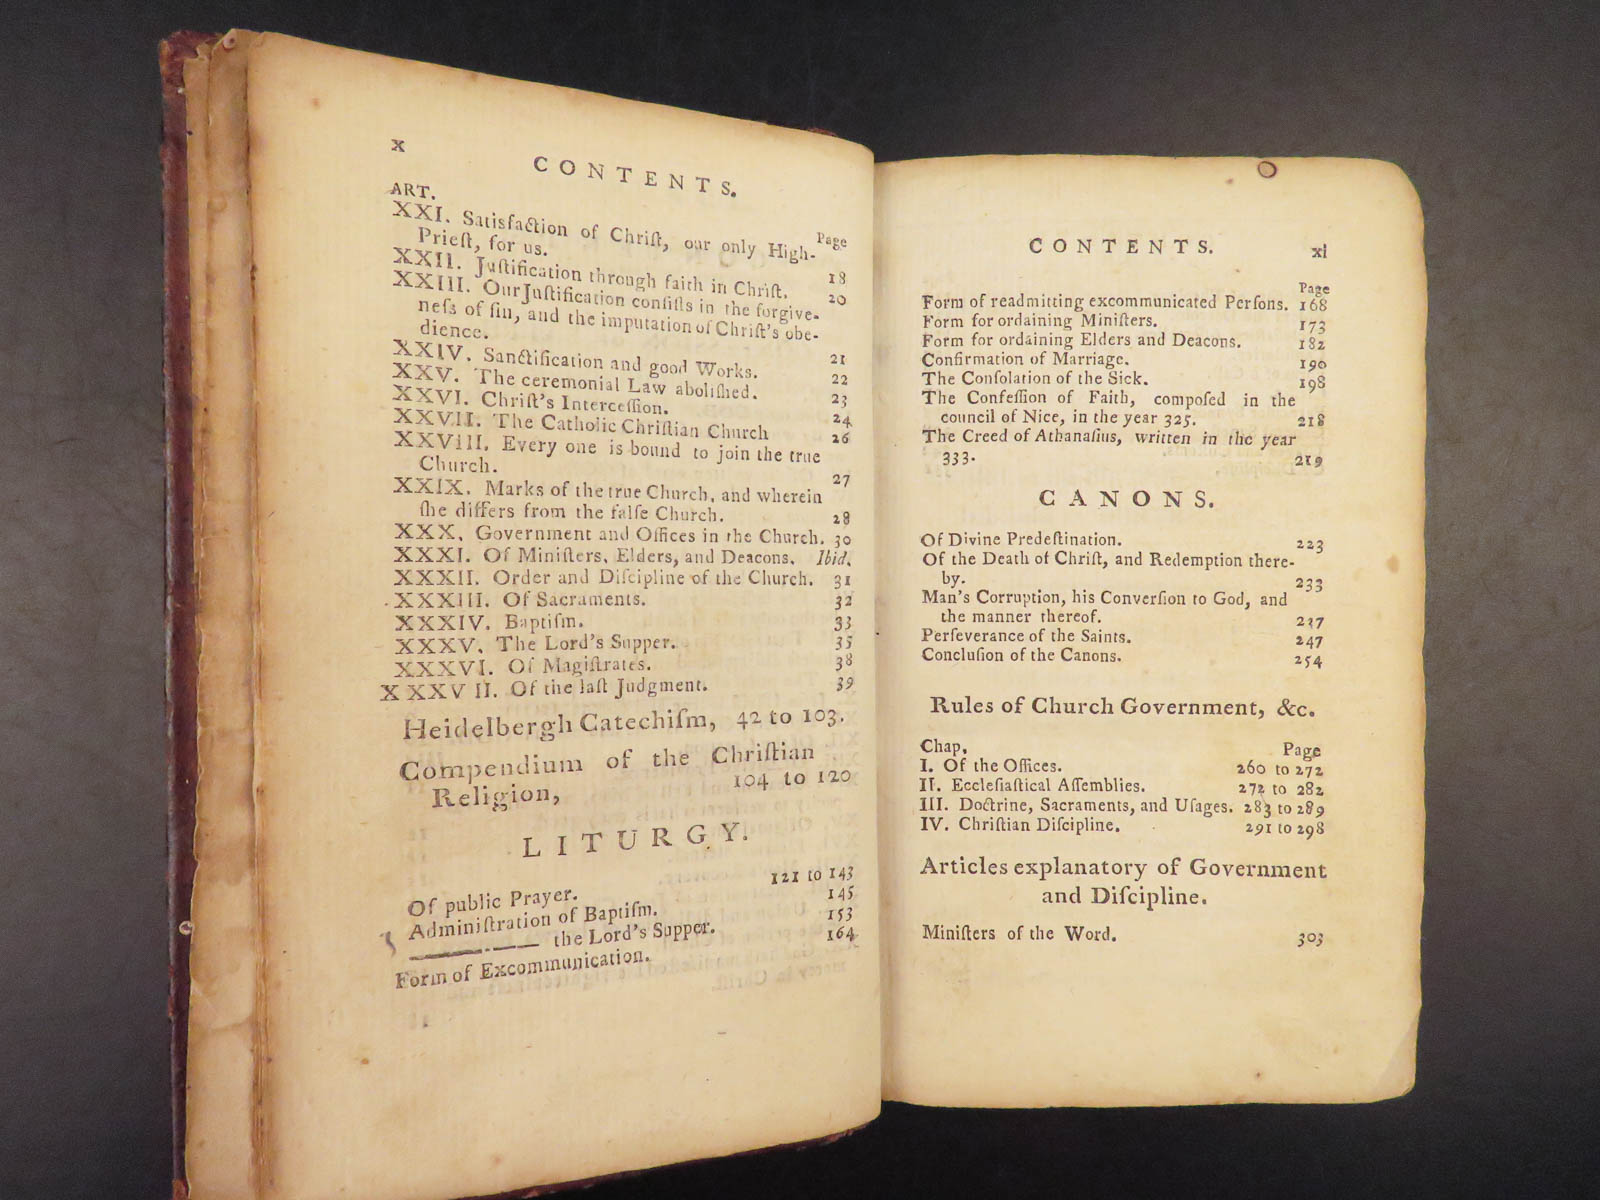 x
CONTENTS.
ART.
Page
XXI. Satisfaction of Chriſt, our only High-
Prieſt, for us. 18
XXII. Juſtification through faith in Chriſt. 20
XXIII. Our Juſtification conſiſts in the forgive-
neſs of ſin, and the imputation of Chriſt's obe-
dience. 21
XXIV. Sanctification and good Works. 22
XXV. The ceremonial Law aboliſhed. 23
XXVI. Chriſt's Interceſſion. 24
XXVII. The Catholic Chriſtian Church 26
XXVIII. Every one is bound to join the true
Church. 27
XXIX. Marks of the true Church, and wherein
ſhe differs from the falſe Church. 28
XXX. Government and Offices in the Church. 30
XXXI. Of Miniſters, Elders, and Deacons. Ibid.
XXXII. Order and Diſcipline of the Church. 31
XXXIII. Of Sacraments. 32
XXXIV. Baptiſm. 33
XXXV. The Lord's Supper. 35
XXXVI. Of Magiſtrates. 38
XXXVII. Of the laſt Judgment. 39
Heidelbergh Catechiſm, 42 to 103.
Compendium of the Chriſtian
Religion, 104 to 120
LITURGY.
Of public Prayer. 121 to 143
Adminiſtration of Baptiſm. 145
——— the Lord's Supper. 153
Form of Excommunication. 164
CONTENTS. xi
Page
Form of readmitting excommunicated Perſons. 168
Form for ordaining Miniſters. 173
Form for ordaining Elders and Deacons. 182
Confirmation of Marriage. 190
The Conſolation of the Sick. 198
The Confeſſion of Faith, compoſed in the
council of Nice, in the year 325. 218
The Creed of Athanaſius, written in the year
333. 219
CANONS.
Of Divine Predeſtination. 223
Of the Death of Chriſt, and Redemption there-
by. 233
Man's Corruption, his Converſion to God, and
the manner thereof. 237
Perſeverance of the Saints. 247
Concluſion of the Canons. 254
Rules of Church Government, &c.
Chap. Page
I. Of the Offices. 260 to 272
II. Eccleſiaſtical Aſſemblies. 272 to 282
III. Doctrine, Sacraments, and Uſages. 283 to 289
IV. Chriſtian Diſcipline. 291 to 298
Articles explanatory of Government
and Diſcipline.
Miniſters of the Word. 303